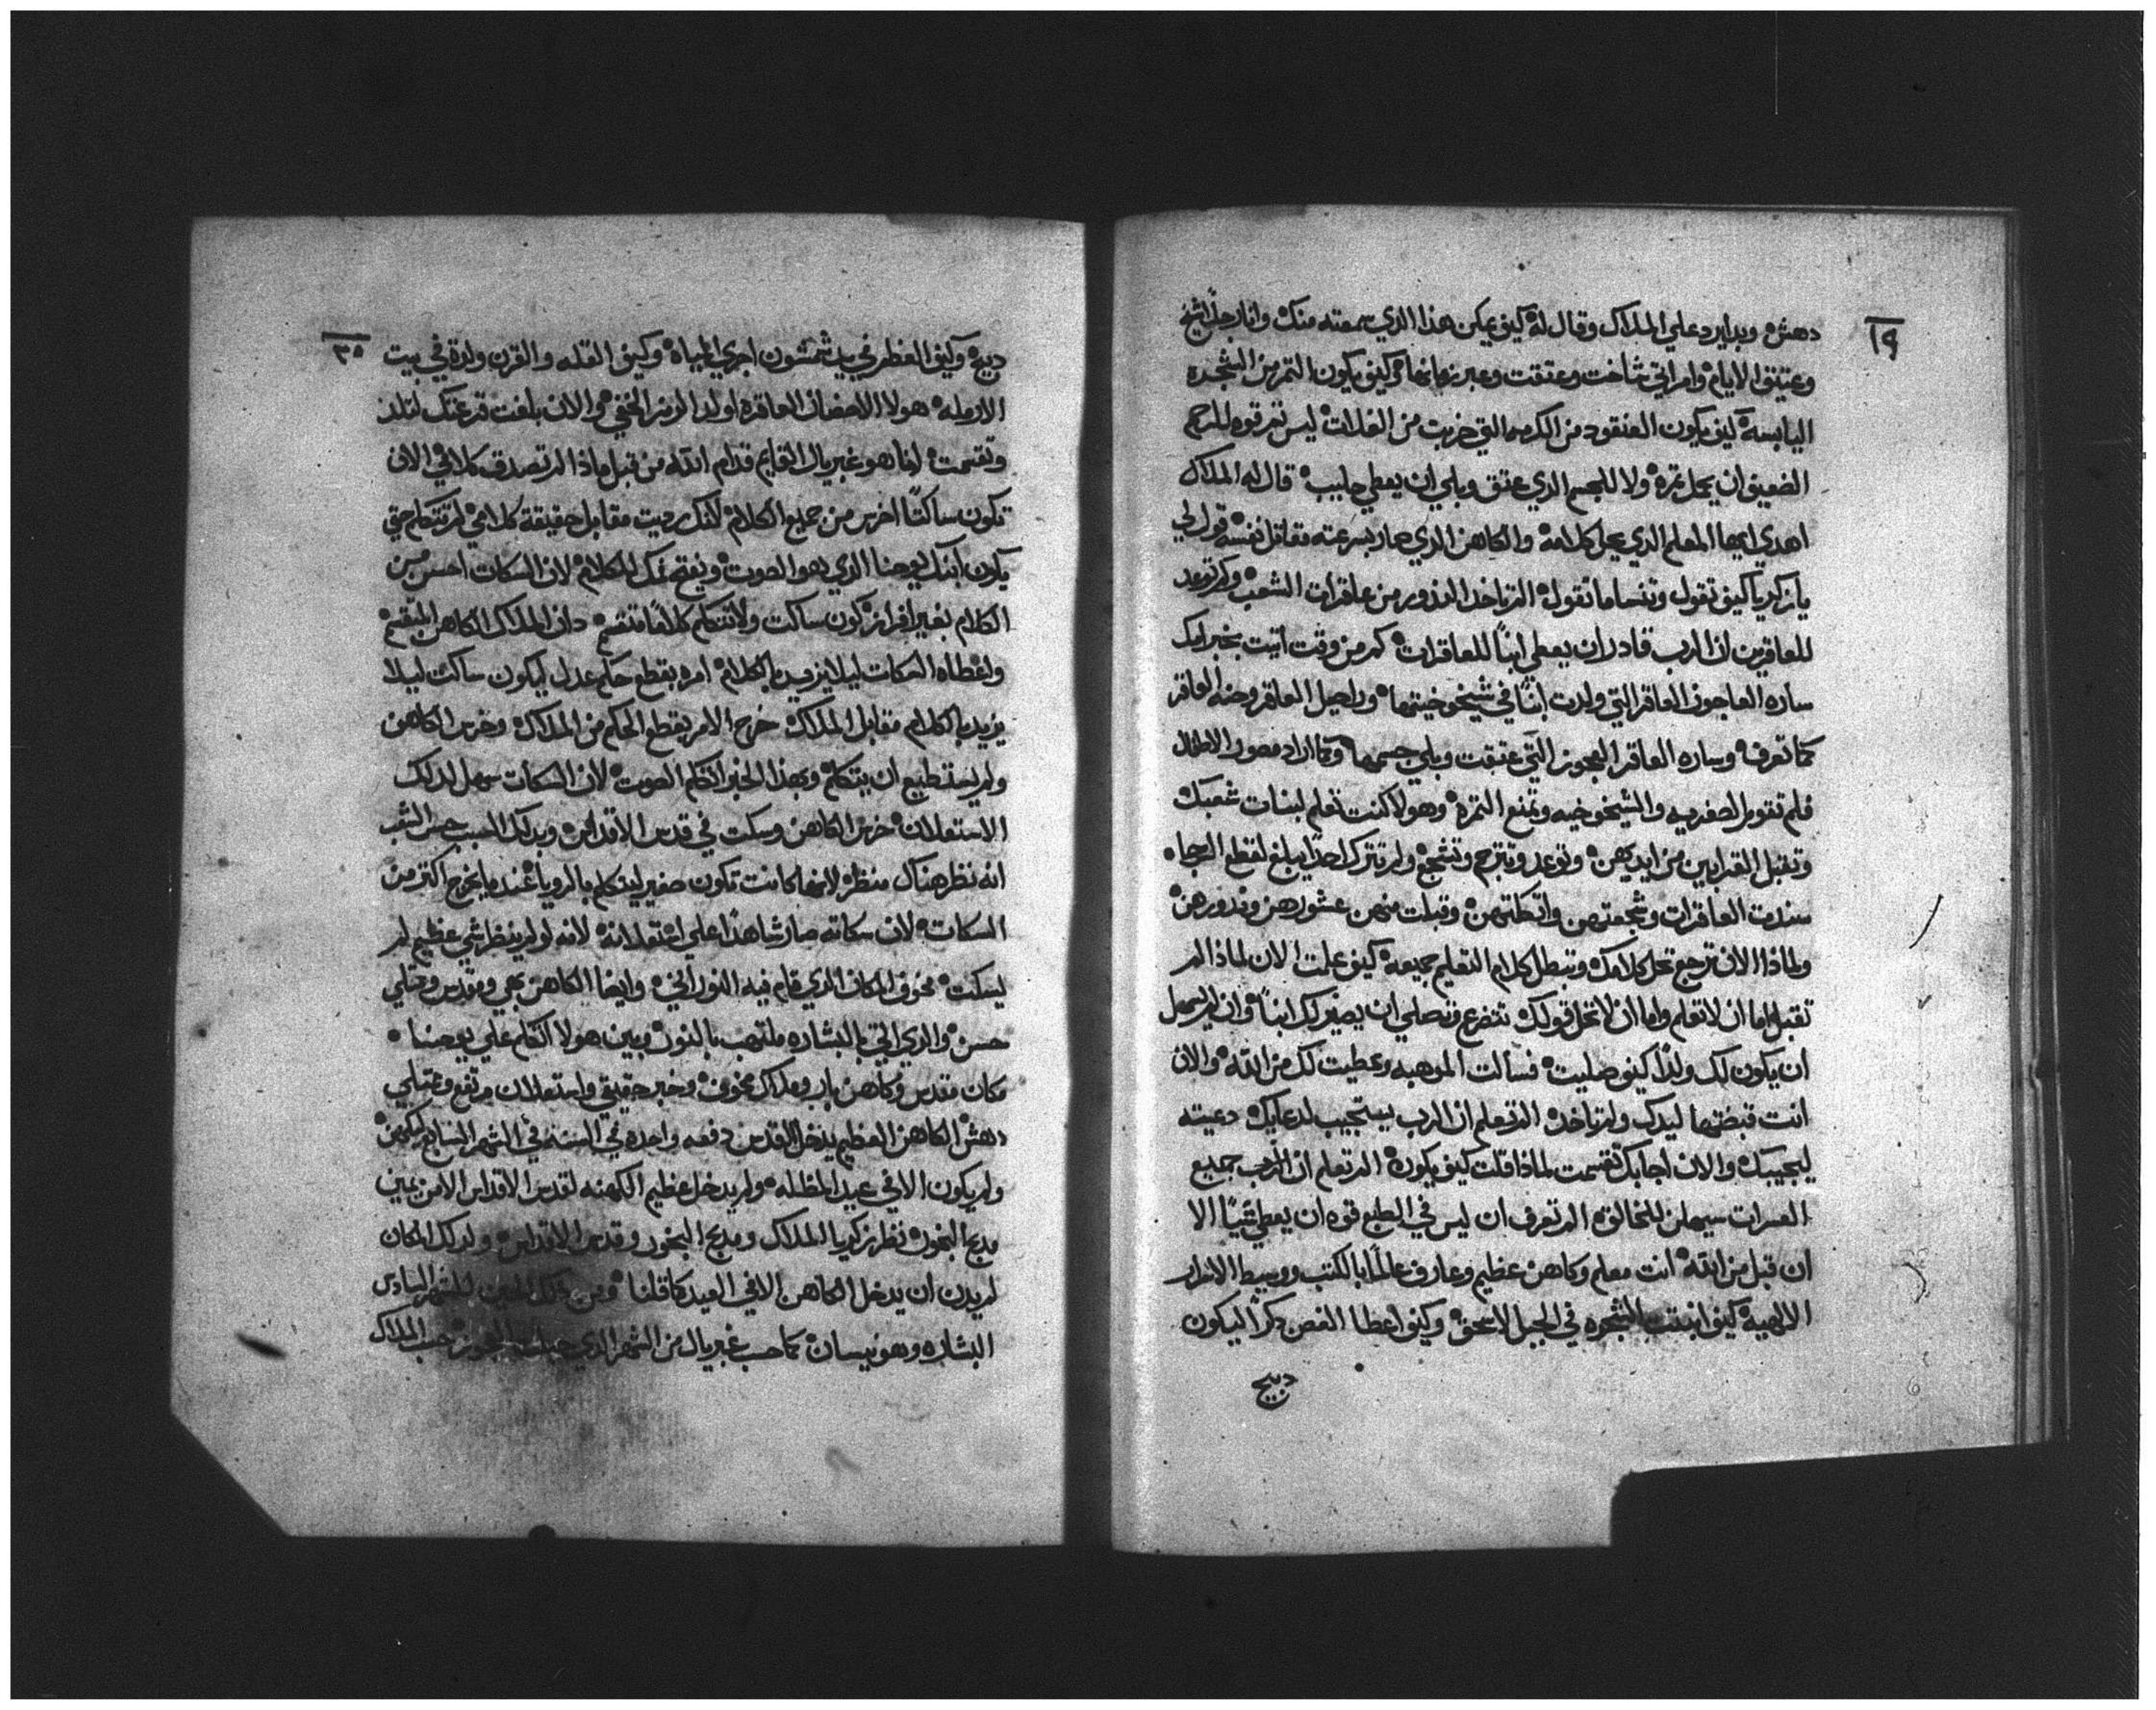 ١٩
دهش وبدا يرد علي الملاك وقال له كيف يمكن هذا الدي سمعته منك وانا رجلاً شيخ
وعتيق الايام وامراتي شاخت وعتقت وعبر زمانها وكيف يكون التمر من الشجره
اليابسه كيف يكون العنقود من الكرمه التي خربت من الغلات ليس تم قوه للرحم
الضعيف ان يحمل تمره ولا للجسم الدي عتق وبلي ان يعطي حليب قال له الملاك
اهدي ايها المعلم الدي يحل كلامه والكاهن الدي صار بسرعته مقاتل نفسه قول لي
يا زكريا كيف تقول وتنسا ما تقول الم تاخد الندور من عاقرات الشعب ولم توعد
للعاقرين ان الرب قادر ان يعطي ابناً للعاقرات كم من وقت اتيت بخبر ايك
ساره العاجوز العاقر التي ولدت ابناً في شيخوخيتها وراحيل العاقر وحنه العاقر
كما تعرف وساره العاقر العجوز التي عتقت وبلي جسمها وكما اراد مصور الاطفال
فلم تقوم الصغريه والشيخوخيه وتمنع التمره وهولا كنت تعلم لبنات شعبك
وتقبل القرابين من ايديهن وتوعد وتترجم وتشجع ولم تترك احداً يبلغ لقطع الرجا
سندت العاقرات وشجعتهن واتكلتهن وقبلت منهن عشورهن وندورهن
ولمادا الان ترجع تحل كلامك وتبطل كلام التعليم جميعه كيف علمت الان لمادا لم
تقبل اما ان لا تعلم واما ان لا تحل قولك تتضرع وتصلي ان يصير لك ابناً وان لم يسهل
ان يكون لك ولداً كيف صليت فسالت الموهبه وعطيت لك من الله والان
انت قبضتها ليدك ولم تاخد الم تعلم ان الرب يستجيب لدعايك دعيته
ليجيبك والان اجابك تقسمت لمادا قلت كيف يكون الم تعلم ان الرب جميع
العسرات سيهلن للخالق الم تعرف ان ليس في الطبع قوه ان يعطي شياً الا
ان قبل من الله انت معلم وكاهن عظيم وعارف عالماً بالكتب ووسيط الاسرار
الالهيه كيف انبتت الشجره في الجبل لاسحق وكيف اعطا الغصن دكراً ليكون
دبيح
٣٥
دبيح وكيف العظم في يد شمشون اجري المياه وكيف القله والقرن ولدة في بيت
الارمله هولا الاحضان العاقره اولد الرمز الخفي والان بلغت قرعتك لتلد
وتقسمت انا هو غبريال القايم قدام الله من قبل مادا لم تصدق كلامي الان
تكون ساكتاً اخرس من جميع الكلام لانك رديت مقابل حقيقة كلامي لم تتكلم حتي
يكون ابنك يوحنا الدي هو الصوت ويفتح لك الكلام لان السكات احسن من
الكلام بغير افراز كون ساكت ولا تتكلم كلاماً متقسم دان الملاك الكاهن المتقسم
واعطاه السكات ليلا يزيد بالكلام امره بقطع حكم عدل ليكون ساكت ليلا
يزيد بالكلام مقابل الملاك خرج الامر بقطع الحكم من الملاك وخرس الكاهن
ولم يستطيع ان يتكلم وبهدا الخبر اتكلم الصوت لان السكات سهل لدلك
الاستعلان خرس الكاهن وسكت في قدس الاقداس وبدلك السبب حس الشعب
انه نظر هناك منظر لانها كانت تكون صغير ليتكلم بالرويا عندما يخرج اكتر من
السكات لان سكاته صار شاهداً علي استعلانه لانه لو لم ينظر شي عظيم لم
يسكت مخوف المكان الدي قام فيه النوراني وايضا الكاهن بهي ومقدس وحتلي
حسن والدي اتي بالبشاره ملتهب بالنور وبين هولا اتكلم علي يوحنا
مكان مقدس وكاهن بار وملاك مخوف وخبر حقيقي واستعلان مرتفع وعتيلي
دهش الكاهن العظيم يدخل القدس دفعه واحده في السنه في الشهر السابع
ولم يكون الا في عيد المظله ولم يدخل عظيم الكهنه لقدس الاقداس الا من يمين
مدبح البخور نظر زكريا الملاك ومدبح البخور وقدس الاقداس ولدلك المكان
لم يدن ان يدخل الكاهن الا في العيد كما قلنا ومن دلك الحين للشهر السادس
البشاره وهو نيسان كما حسب غبريال من الشهر الدي حبلت العجوز حسب الملاك